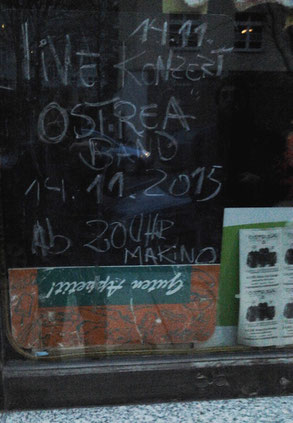 14.11.
LIVE KONZERT
OST.REA
BAND
14.11.2015
Ab 20UHR
MAKINO
Guten Appetit!